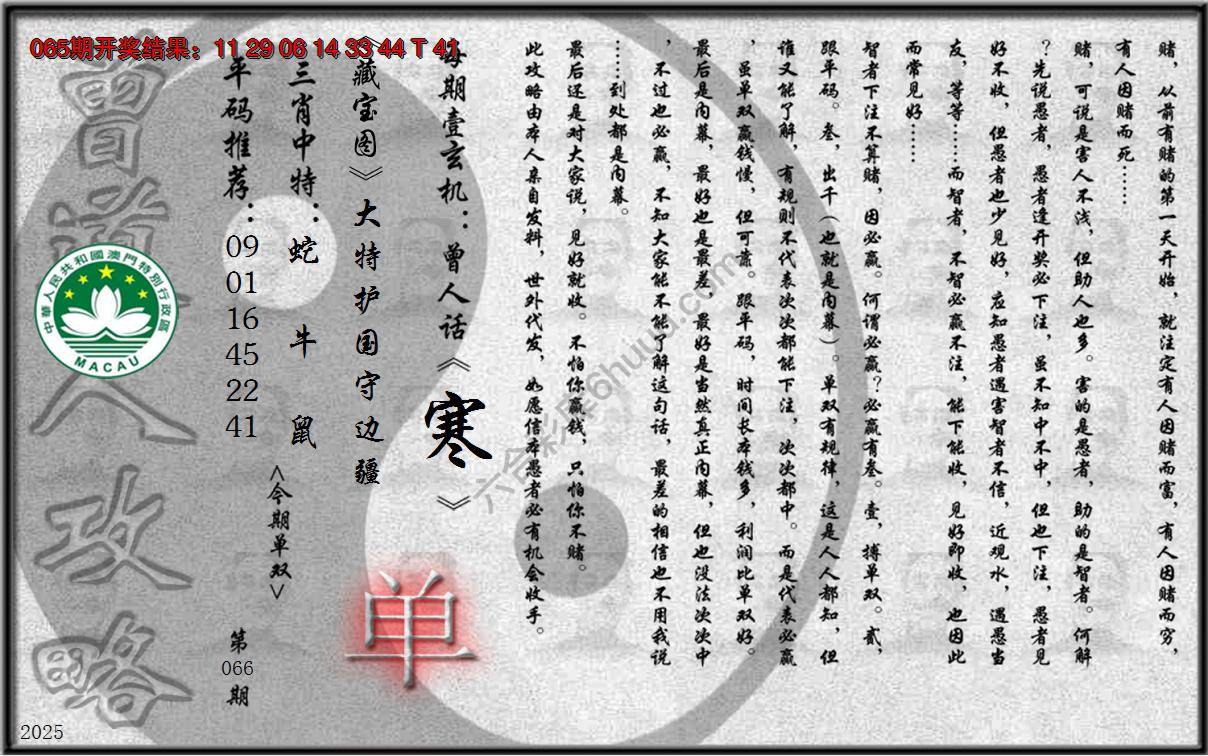 065期开奖结果：11 29 06 14 33 44 T 41
赌，从前有赌的第一天开始，就注定有人因赌而富，有人因赌而穷，
有人因赌而死……
赌，可说是害人不浅，但助人也多。害的是愚者，助的是智者。何解
？先说愚者，愚者逢开奖必下注，虽不知中不中，但也下注，愚者见
好不收，但愚者也少见好，应知愚者遇害智者不信，近观水，遇愚当
友，等等……而智者，不智必赢不注，能下能收，见好即收，也因此
而常见好……
智者下注不算赌，因必赢。何谓必赢？必赢有叁。壹，搏单双。贰，
跟平码。叁，出千（也就是内幕）。单双有规律，这是人人都知，但
谁又能了解，有规则不代表次次都能下注，次次都中。而是代表必赢
，虽单双赢钱慢，但可靠。跟平码，时间长本钱多，利润比单双好。
最后是内幕，最好也是最差，最好是当然真正内幕，但也没法次次中
，不过也必赢，不知大家能不能了解这句话，最差的相信也不用我说
……到处都是内幕。
最后还是对大家说，见好就收。不怕你赢钱，只怕你不赌。
此攻略由本人亲自发料，世外代发，如愿信本愚者必有机会收手。
每期壹玄机：曾人话《寒》
《藏宝图》大特护国守边疆
三肖中特：蛇 牛 鼠
<今期单双>
单
平码推荐：09 01 16 45 22 41
第066期
曾道人攻略
中華人民共和國澳門特別行政區
MACAU
六合彩库6huuu.com
2025